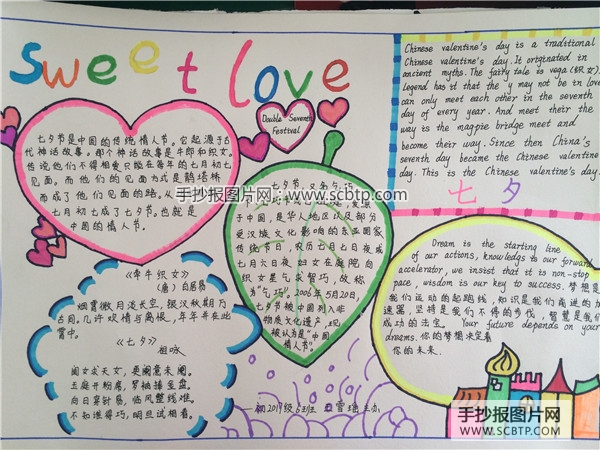 Sweet love
Double Seventh
Festival
七夕节是中国的传统情人节。它起源于古
代神话故事。那个神话故事是牛郎和织女。
传说他们不得相爱只能在每年的七月初七
见面。而他们的见面方式是鹊搭桥
而成了他们见面的路。从
七月初七成了七夕节。也就是
中国的情人节。
《牵牛织女》
(唐) 白居易
烟霄微月淡长空，银汉秋期万
古同。几许欢情与离恨，年年并在此
宵中。
《七夕》
祖咏
闺女求天文，更阑意未阑。
玉庭开粉席，罗袖捧金盘。
向日穿针易，临风整线难。
不知谁得巧，明旦试相看。
七夕节，又名乞巧
于中国，是华人地区以及部分
受汉族文化影响的东亚国家
传统节日，农历七月七日夜或
七月六日夜妇女在庭院向
织女星乞求智巧，故称
为"乞巧"。2006年5月20日，
七夕节被中国列入非
物质文化遗产，现
被认为是"中国
情人节"。
初2019级6班
Chinese valentine's day is a traditional
Chinese valentine's day. It originated in
ancient myths. The fairy tale is vega (织女).
Legend has it that the y may not be in love
can only meet each other in the seventh
day of every year. And meet their the
way is the magpie bridge meet and
become their way. Since then China's
seventh day became the Chinese valentine
day. This is the Chinese valentine's day.
七夕
Dream is the starting line
of our actions, knowledge is our forward
accelerator, we insist that it is non-stop
pace, wisdom is our key to success. 梦想是
我们运动的起跑线，知识是我们前进的加
速器，坚持是我们不停的步伐，智慧是我们
成功的法宝。Your future depends on your
dreams. 你的梦想决定着
你的未来.
手抄报图片网
www.scbtp.com
手抄报图片网
SCBTP.COM